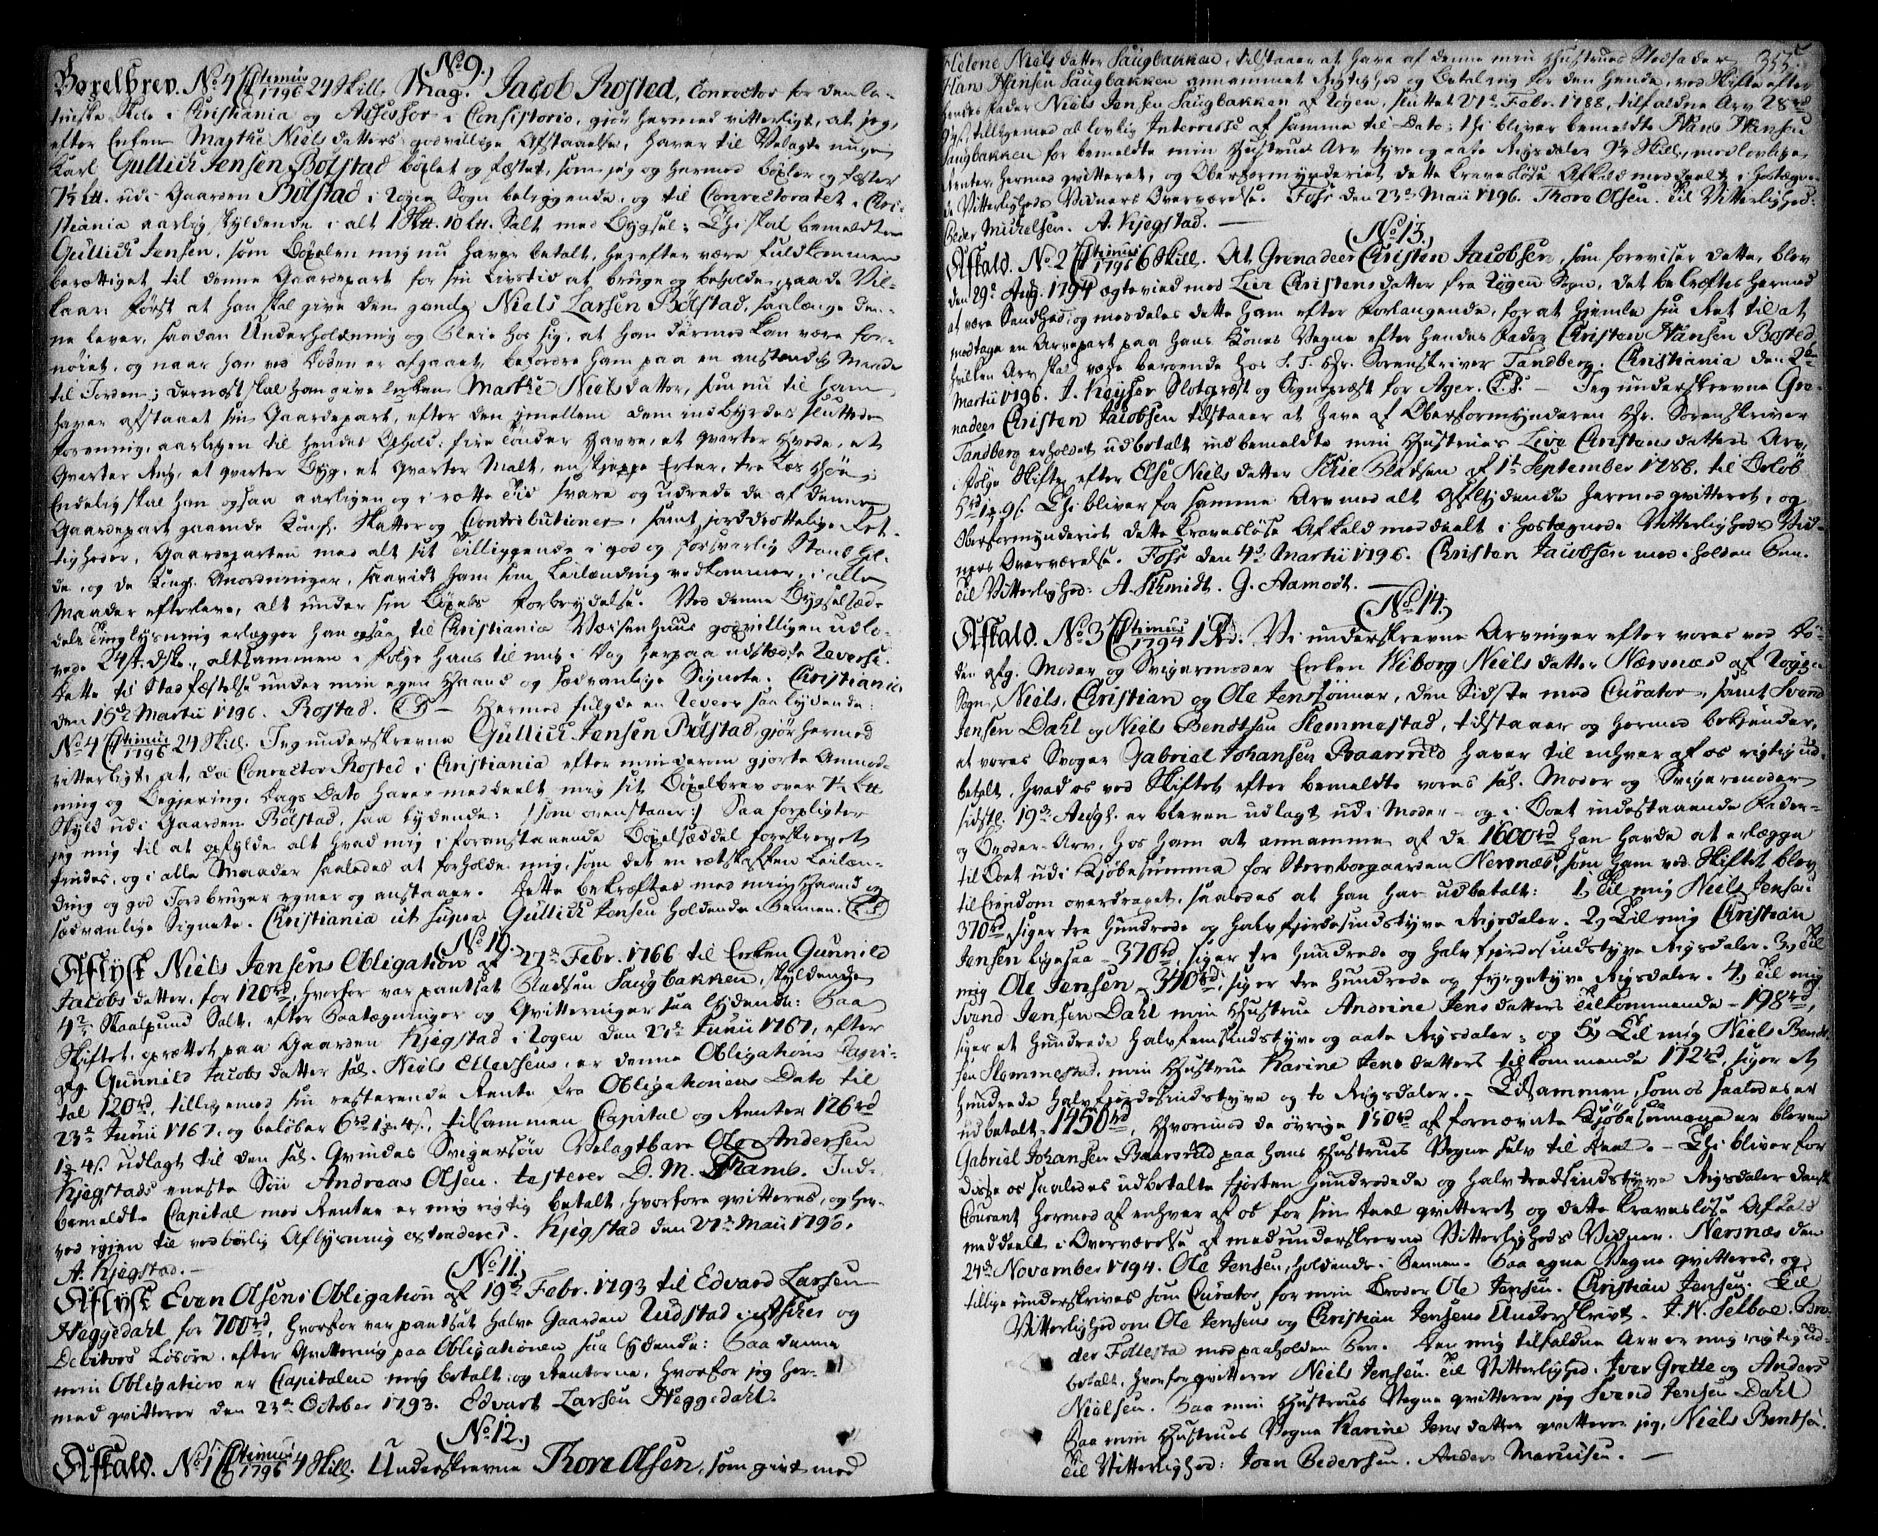 (No 9.)
Böxelbrev. No 4 Ctimus 1796 24 Skill. Mag. Jacob Rosted, Conrector for den la-
tinske Skole i Christiania og Assessor i Consistorio, giör hermed vitterligt, at jeg,
efter Enken Marthe Niels datters godvillige Afstaaelse, haver til Velagte unge
Karl Gullich Jensen Bölstad böxlet og fæstet, som jeg og hermed böxler og fæster
udi Gaarden Bölstad i Rögen Sogn beliggende, og til Conrectoratet i Chri-
stiania aarlig skyldende i alt Salt med Bygsel; Thi skal bemeldte
Gullich Jensen, som Böxelen mig nu haver betalt, herefter være fuldkommen
berettiget til denne Gaardepart for sin Livstid at bruge og beholde, paa de Vil-
kaar: Først at han skal give den gamle Niels Larsen Bölstad, saalænge den-
ne lever, saadan Underholdning og Pleie hos sig, at han dermed kan være for-
nöiet, og naar han ved Döden er afgaaet, befordre ham paa en anstændig Maade
til Jorden; dernæst skal han give Enken Marthe Niels datter, som nu til ham
haver afstaaet sin Gaardepart, efter den imellem dem indbyrdes sluttede
Forening, aarligen til hendes Ophold: fire Tönder Havre, et qvarter Hvede, et
Qvarter Rug, et qvarter Byg, et qvarter Malt, en skjeppe Erter, tre Læs Höe;
Endelig skal han ogsaa aarligen og i rette Tid svare og udrede de af denne
Gaardepart gaaende Kongl. Skatter og Contributioner, samt jorddrottelige Ret-
tigheder, Gaardeparten med alt sit Tilliggende i god og forsvarlig Stand hol-
de, og de Kongl. Anordninger, saavidt ham som Leilænding vedkommer, i alle
Maader efterleve, alt under sin Böxels Forbrydelse. Ved denne Bygselsed-
dels Tinglysning erlægger han ogsaa til Christiania Vaisenhuus godvilligen udlo-
vede 24 s. dske, altsammen i Følge hans til mig i Dag herpaa udstædte Revers.
Dette til Stadfæstelse under min egen Haand og sædvanlige Signete. Christiania
den 15de Martii 1796. Rosted. (L.S.) — Hermed fulgde en Revers saa lydende:
No 4 Ctimus 1796 24 Skill. Jeg underskrevne Gullich Jensen Bölstad, gjör hermed
vitterligt, at, da Conrector Rosted i Christiania efter min derom gjorte Anmod-
ning og Begjering, Dags Dato haver meddeelt mig sit Böxelbrev over
Skyld udi Gaarden Bölstad, saa lydende: /:som ovenstaaer:/ Saa forpligter
jeg mig til at opfylde alt hvad mig i foranstaaende Böxelseddel foreskrevet
findes, og i alle Maader saaledes at forholde mig, som det en retskaffen Leilæn-
ding og god Jordbruger egner og anstaaer. Dette bekræftes med min Haand og
sædvanlige Signete. Christiania ut supra. Gullich Jensen holdende Pennen. (L.S.)
(No 10.)
Aflyst Niels Jensens Obligation af 27de Febr. 1766 til Enken Gunnild
Jacobs datter, for 120rd, hvorfor var pantsat Pladsen Saugbakken, skyldende
4 Skaalpund Salt, efter Paategninger og Qvitteringer saa lydende: Paa
Skiftet, oprettet paa Gaarden Kjegstad i Rögen den 23de Junii 1767, efter
afg. Gunnild Jacobs datter sal. Niels Ellevsens, er denne Obligations Capi-
tal 120rd, tilligemed sin resterende Rente fra Obligationens Dato til
23de Junii 1767, og beløber 6rd 1 4s, tilsammen Capital og Renter 126rd
1 4s. udlagt til den sal. Qvindes Svigersøn Velagtbare Ole Andersen
Kjegstads eneste Søn Andreas Olsen. testerer D. M. Framb. Ind-
bemeldte Capital med Renter er mig rigtig betalt, hvorfore qvitteres, og her-
ved igjen til vedbørlig Aflysning extraderes. Kjegstad den 27de Maii 1796.
A. Kjegstad. —
(No 11.)
Aflyst Even Olsens Obligation af 19de Febr. 1793 til Edvard Larsen
Heggedahl for 700rd, hvorfor var pantsat halve Gaarden Rustad i Asker og
Debitors Løsøre, efter Qvittering paa Obligationen saa lydende: Paa denne
min Obligation er Capitalen mig betalt og Renterne, hvorfor jeg her-
med qvitterer den 23de October 1793. Edvart Larsen Heggedahl.
(No 12.)
Afkald. No 1 Ctimus 1796 4 Skill. Underskrevne Thore Olsen, som givt med
355.
Helene Niels datter Saugbakken, tilstaaer at have af denne min Hustrues Stedfader
Hans Hansen Saugbakken annammet Rigtighed og Betaling for den hende, ved Skifte efter
hendes Fader Niels Jensen Saugbakken af Rögen, sluttet 27de Febr. 1788, tilfaldne Arv 28rd
9 s, tilligemed al lovlig Interesse af samme til Dato; thi bliver bemeldte Hans Hansen
Saugbakken for bemeldte min Hustrues Arv tyve og aate Rigsdaler 9 Skill., med lovlige
Renter, hermed qvitteret, og Overformynderiet dette kravesløse Afkald meddeelt i hostegne-
de Vitterligheds Vidners Overværelse. Foss den 23de Maii 1796. Thore Olsen. Til Vitterlighed:
Peder Michelsen. A. Kjegstad. —
(No 13.)
Afkald. No 2 Ctimus 1796 6 Skill. At Grenadeer Christen Jacobsen, som foreviser dette, blev
den 29de Aug. 1794 ægtevied med Live Christens datter fra Rögen Sogn, det bekræftes hermed
at være Sandhed, og meddeles dette ham efter Forlangende, for at hjemle sin Ret til at
modtage en Arvepart paa hans Kones Vegne efter hendes Fader Christen Hansen Bosted,
hvilken Arv skal være beroende hos S. T. Hr. Sorenskriver Tandberg. Christiania den 2de
Martii 1796. J. Keyser Slotsprest og Sognepræst for Ager. (L.S.) — Jeg underskrevne Gre-
nadeer Christen Jacobsen tilstaaer at have af Overformynderen Hr. Sorenskriver
Tandberg erholdet udbetalt indbemeldte min Hustrues Live Christens datters Arv,
i Følge Skifte efter Else Niels datter Pladsen af 1ste September 1786. til Beløb
5rd 1 9s. Thi bliver for samme Arv med alt afflydende hermed qvitteret, og
Overformynderiet dette kravesløse Afkald meddeelt i hostegnede Vitterligheds Vid-
ners Overværelse. Foss den 4de Martii 1796. Christen Jacobsen med iholden Pen.
Til Vitterlighed: A. Schmidt. G. Aamodt. —
(No 14.)
Afkald. No 3 Ctimus 1794 1 Rd. Vi underskrevne Arvinger efter vores ved Dö-
den afg. Moder og Svigermoder Enken Wiborg Niels datter Nærsnæs af Rögen
Sogn, Niels, Christian og Ole Jenssønner, den Sidste med Curator, samt Svend
Jensen Dahl og Niels Bendtsen Slemmestad, tilstaaer og hermed bekjender,
at vores Svoger Gabriel Johansen Baarsrud haver til enhver af os rigtig ud-
betalt, hvad os ved Skiftet efter bemeldte vores sal. Moder og Svigermoder
sidstl. 19de Augl. er bleven udlagt udi Moder- og i Boet indestaaende Fader-
og Broder-Arv, hos ham at annamme af de 1600rd han havde at erlægge
til Boet udi Kjøbesumma for Sterbøgaarden Nersnæs, som ham ved Skiftet blev
til Eiendom overdraget, saaledes at han har udbetalt: 1, Til mig Niels Jensen
370rd, siger tre Hundrede og halvfjerdesindstyve Rigsdaler. 2, Til mig Christian
Jensen ligesaa — 370rd, siger tre Hundrede og halvfjerdesindstyve Rigsdaler. 3, Til
mig Ole Jensen — 340rd, siger tre Hundrede og fyrgetyve Rigsdaler. 4, Til mig
Svend Jensen Dahl min Hustrue Andrine Jens datters tilkommende — 198rd,
siger et Hundrede halvfemsindstyve og aate Rigsdaler; og 5, Til mig Niels Bendt-
sen Slemmestad min Hustrue Karine Jens datters tilkommende 172rd, siger et
Hundrede halvfjerdesindstyve og to Rigsdaler. — Tilsammen, som os saaledes er
udbetalt, 1450rd, hvorimod de øvrige 150rd af fornævnte Kjøbesumma er bleven
Gabriel Johansen Baarsrud paa hans Hustrues Vegne selv til Deel. — Thi bliver for
disse os saaledes udbetalte fjorten Hundrede og halvtredsindstyve Rigsdaler dansk
Courant hermed af enhver af os for sin Deel qvitteret og dette kravesløse Afkald
meddeelt i Overværelse af medunderskrevne Vitterligheds Vidner. Nersnæs den
24de November 1794. Ole Jensen, holdende i Pennen. Paa egne Vegne qvitteres, og
tillige underskrives som Curator for min Broder Ole Jensen. Christian Jensen. Til
Vitterlighed om Ole Jensens og Christian Jensens Underskrivt. J. W. Selboe. Bro-
der Follestad med paaholden Pen. Den mig tilfaldne Arv er mig rigtig ud-
betalt, hvorfor qvitterer Niels Jensen. Til Vitterlighed. Iver Grette og Anders
Nielsen. Paa min Hustrues Vegne qvitterer jeg Svend Jensen Dahl
Paa min Hustrues Vegne Karine Jens datter qvitterer jeg, Niels Bentsen.
Til Vitterlighed: Joen Pedersen. Anders Mariusen. —